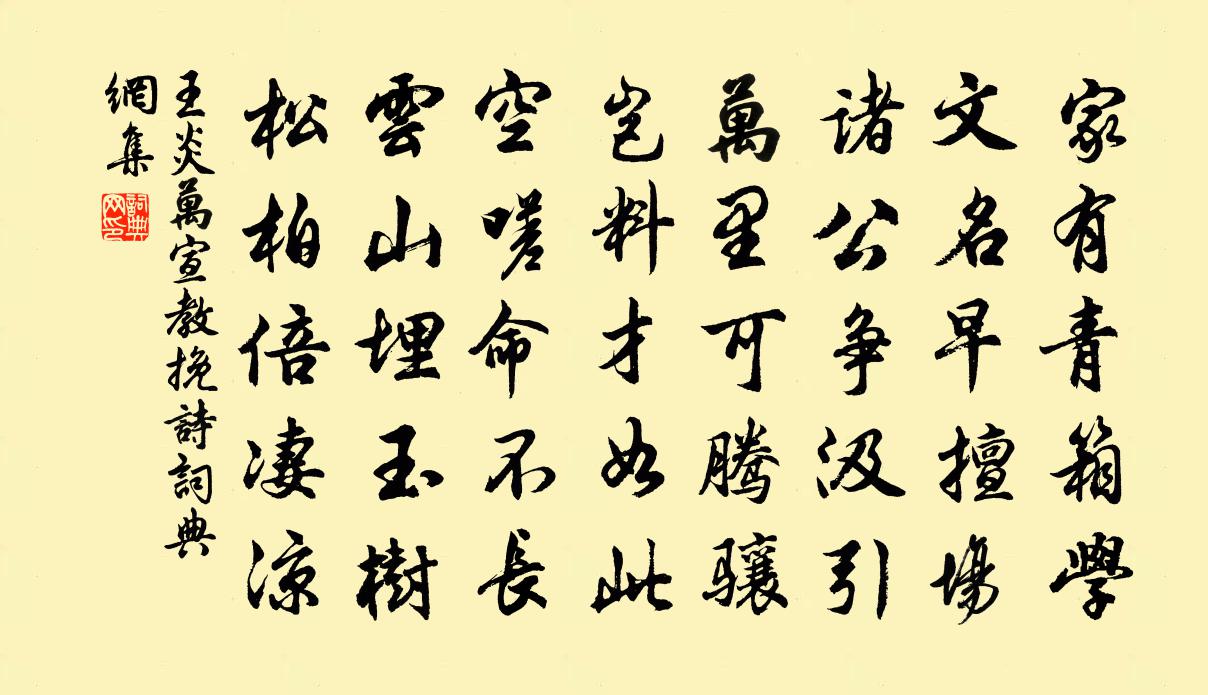 家有青箱學
文名早擅場
諸公争汲引
萬里可騰驤
岂料才如此
空嗟命不長
雲山埋玉樹
松柏倍凄涼
王炎萬宣教挽詩詞典
網集
詞典
网印